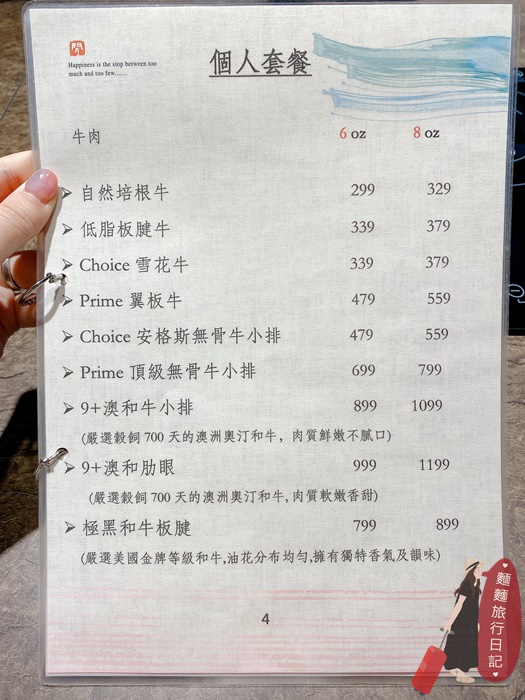 Happiness is the stop between too
much and too few......
個人套餐
牛肉 6 oz 8 oz
➢ 自然培根牛 299 329
➢ 低脂板腱牛 339 379
➢ Choice 雪花牛 339 379
➢ Prime 翼板牛 479 559
➢ Choice 安格斯無骨牛小排 479 559
➢ Prime 頂級無骨牛小排 699 799
➢ 9+澳和牛小排 899 1099
(嚴選穀飼 700 天的澳洲奧汀和牛, 肉質鮮嫩不膩口)
➢ 9+澳和肋眼 999 1199
(嚴選穀飼 700 天的澳洲奧汀和牛,肉質軟嫩香甜)
➢ 極黑和牛板腱 799 899
(嚴選美國金牌等級和牛,油花分布均勻,擁有獨特香氣及韻味)
4
麵麵旅行日記